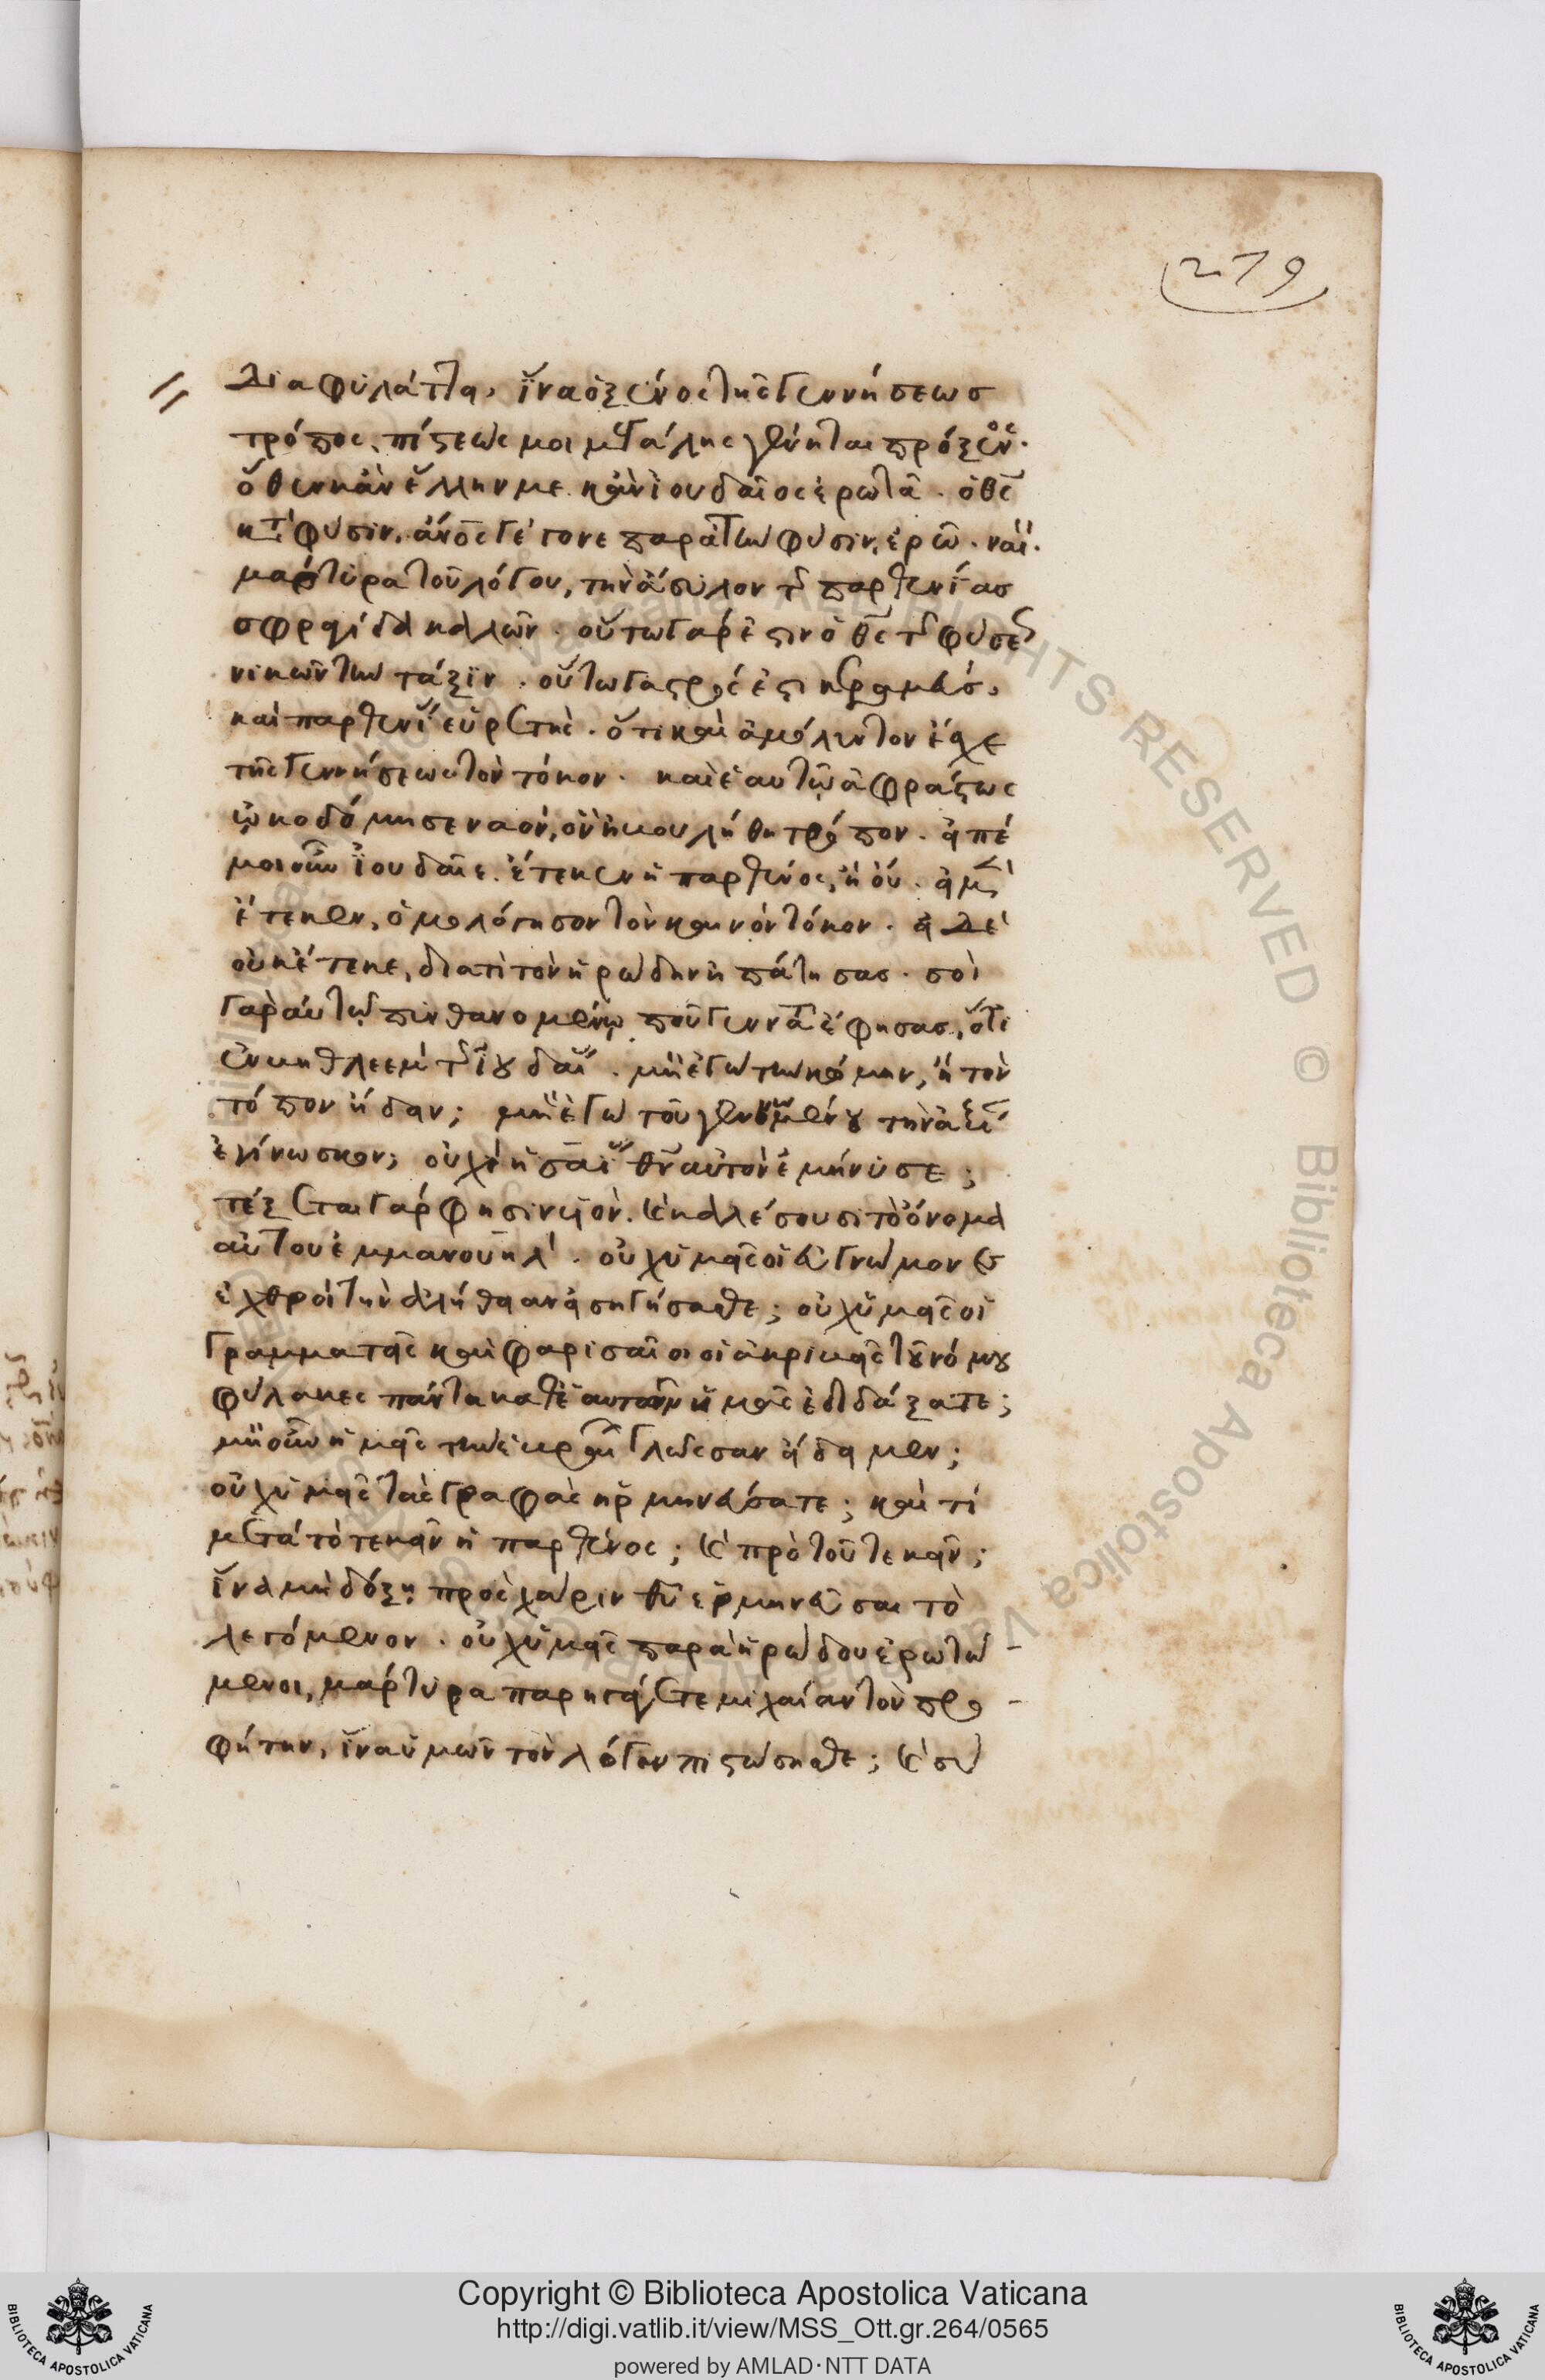 279
διαφυλάττει, ἵνα ὁ ξένος τῆς γεννήσεως
τρόπος, πίστεώς μοι μεγάλης γένηται πρόξενος.
ὅθεν κἂν ἕλλην με κἂν ἰουδαῖος ἐρωτᾶ. ὁ θς
κατὰ φύσιν, ἄνος γέγονε παρὰ τὴν φύσιν, ἐρῶ. ναί.
μάρτυρα τοῦ λόγου, τὴν ἄσυλον τῆς παρθενίας
σφραγίδα καλῶν. οὕτω γάρ ἐστιν ὁ θς τῆς φύσεως
νικῶν τὴν τάξιν. οὕτω γαστρός ἐστι κεραμεύς,
καὶ παρθενίας εὑρετής. ὅτι καὶ ἀμόλυντον ἔσχε
τῆς γεννήσεως τὸν τόκον. καὶ ἑαυτῷ ἀφράστως
ᾠκοδόμησε ναόν, ὃν ἠβουλήθη τρόπον. εἰπέ
μοι οὖν ἰουδαῖε. ἔτεκεν ἡ παρθένος, ἢ οὔ. εἰ μὲν
ἔτεκεν, ὁμολόγησον τὸν καινὸν τόκον. εἰ δὲ
οὐκ ἔτεκε, διατί τὸν ἡρώδην ἠπάτησας. σὺ
γὰρ αὐτῷ πυνθανομένῳ ποῦ γεννᾶται ἔφησας, ὅτι
ἐν βηθλεὲμ τῆς ἰουδαίας. μὴ ἐγὼ τὴν κώμην, ἢ τὸν
τόπον ᾔδειν; μὴ ἐγὼ τοῦ γενομένου τὴν ἀξίαν
ἐγίνωσκον; οὐχὶ ἡσαΐας θν αὐτὸν ἐμήνυσε;
τέξεται γάρ φησιν υἱόν. καὶ καλέσουσι τὸ ὄνομα
αὐτοῦ ἐμμανουήλ. οὐχ ὑμεῖς οἱ ἀγνώμονες
ἐχθροὶ τὴν ἀλήθειαν εἰσηγήσασθε; οὐχ ὑμεῖς οἱ
γραμματεῖς καὶ φαρισαῖοι οἱ ἀκριβεῖς τοῦ νόμου
φύλακες πάντα κατ' αὐτὸν ἡμᾶς ἐδιδάξατε;
μὴ οὖν ἡμεῖς τὴν ἑβραίων γλῶσσαν ᾔδειμεν;
οὐχ ὑμεῖς τὰς γραφὰς ἡρμηνεύσατε; καὶ τί
μετὰ τὸ τεκεῖν ἡ παρθένος; καὶ πρὸ τοῦ τεκεῖν;
ἵνα μὴ δόξῃ πρὸς χάριν θυ ἑρμηνεῦσαι τὸ
λεγόμενον. οὐχ ὑμεῖς παρὰ ἡρώδου ἐρωτώ-
μενοι, μάρτυρα παρηγάγετε μιχαίαν τὸν προ-
φήτην, ἵνα ὑμῶν τὸν λόγον πιστώσησθε; καὶ σὺ
Copyright © Biblioteca Apostolica Vaticana
http://digi.vatlib.it/view/MSS_Ott.gr.264/0565
powered by AMLAD·NTT DATA